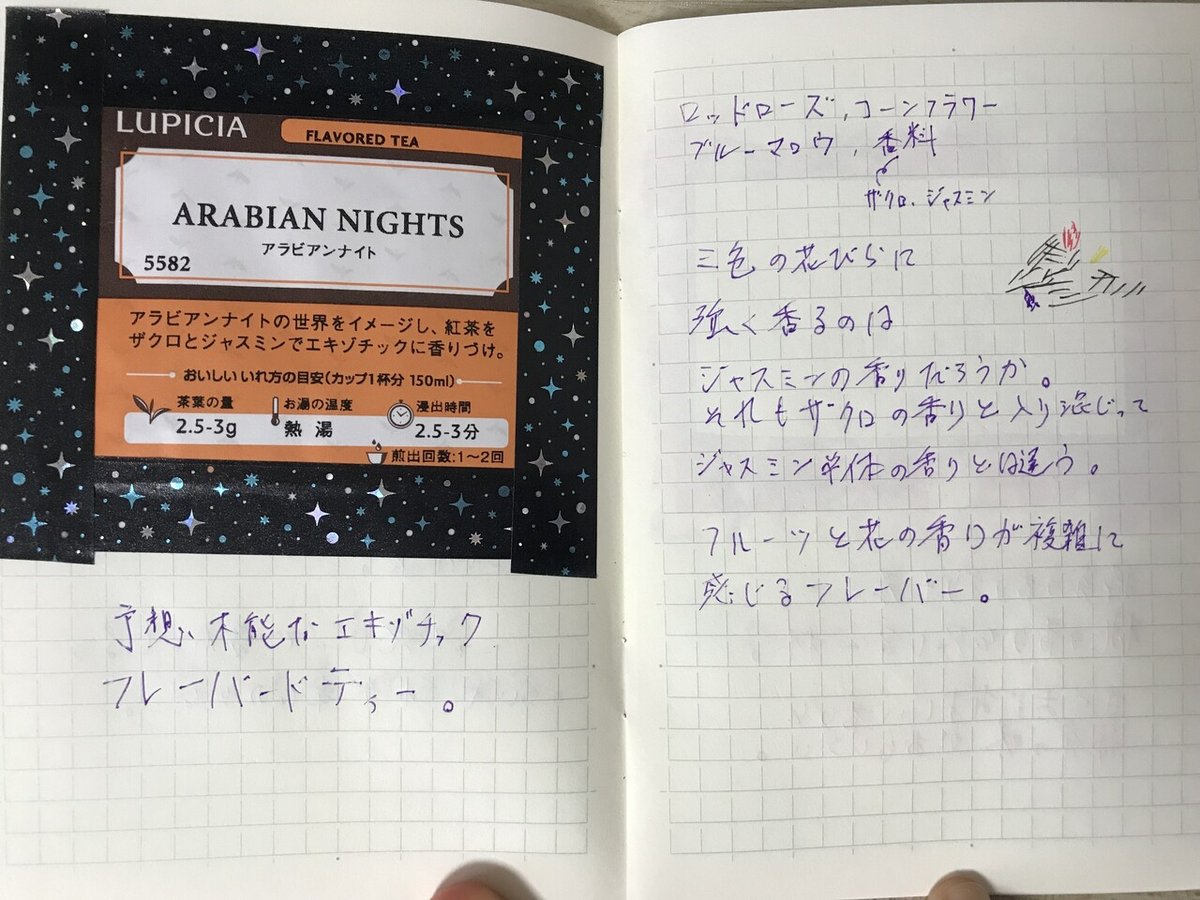 LUPICIA
FLAVORED TEA
ARABIAN NIGHTS
アラビアンナイト
5582
アラビアンナイトの世界をイメージし、紅茶を
ザクロとジャスミンでエキゾチックに香りづけ。
おいしいいれ方の目安(カップ1杯分 150ml)
茶葉の量
2.5-3g
お湯の温度
熱湯
浸出時間
2.5-3分
煎出回数:1〜2回
予想、不能なエキゾチック
フレーバードティー。
ロッドローズ,コーンフラワー
ブルーマロウ,香料
ザクロ、ジャスミン
三色の花びらに
強く香るのは
ジャスミンの香りだろうか。
それもザクロの香りと入り混じって
ジャスミン単体の香りとは違う。
フルーツと花の香りが複雑に
感じるフレーバー。